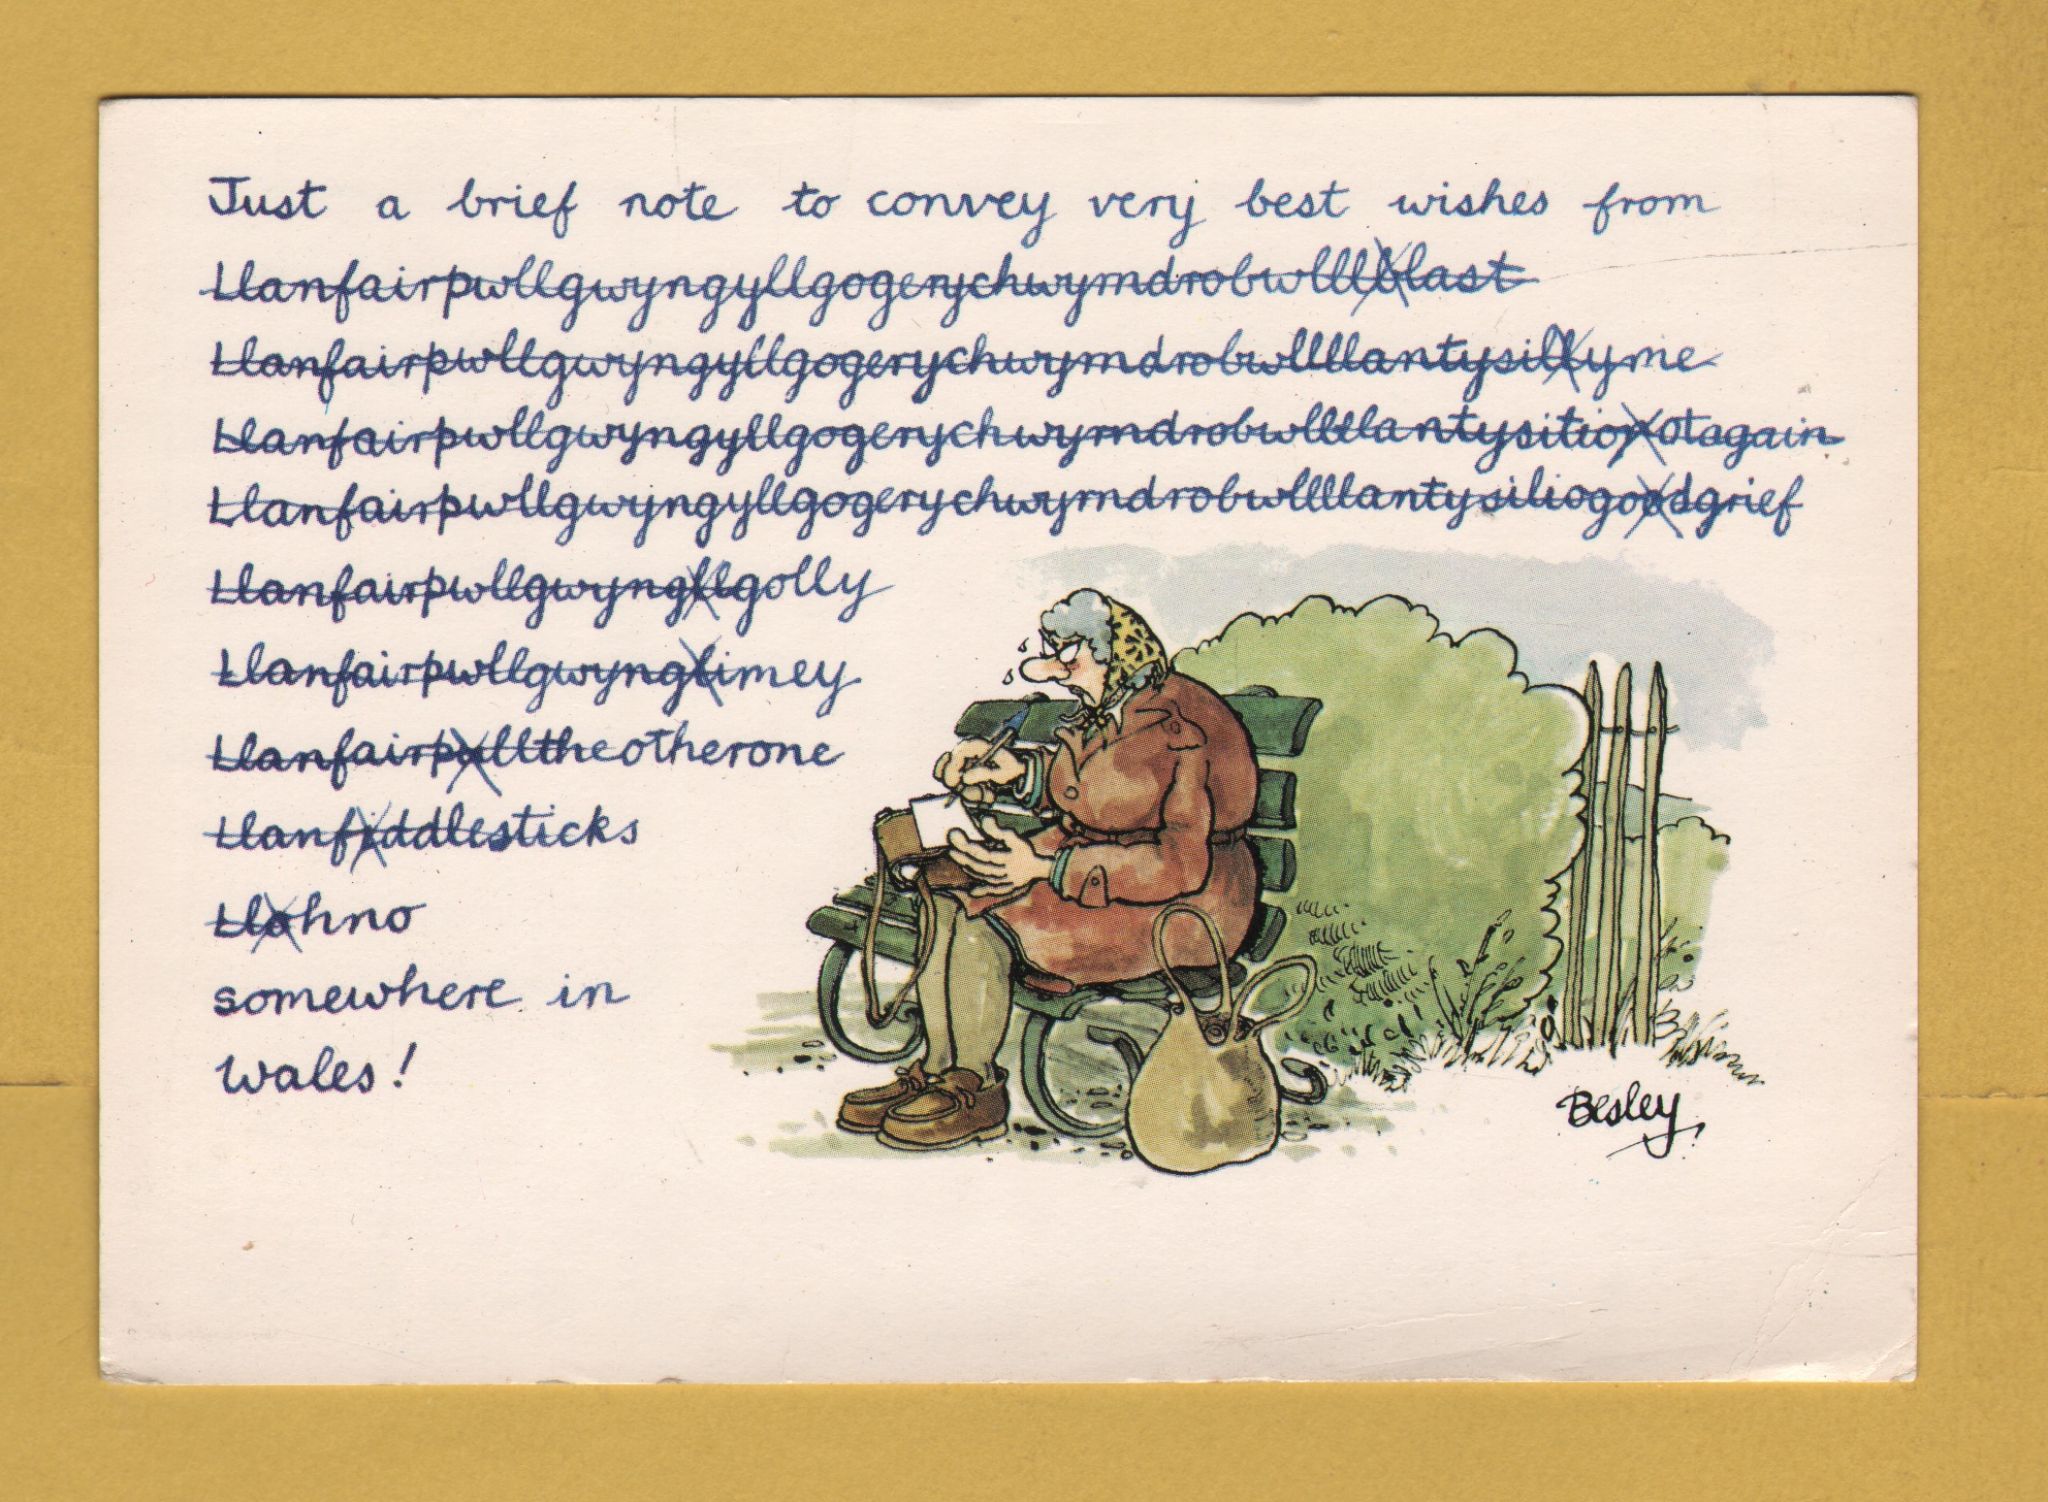 Just a brief note to convey very best wishes from
Llanfairpwllgwyngyllgogerychwyrndrobwlllblast
Llanfairpwllgwyngyllgogerychwyrndrobwllllantysillyme
Llanfairpwllgwyngyllgogerychwyrndrobwllllantysitionotagain
Llanfairpwllgwyngyllgogerychwyrndrobwllllantysiliogoodgrief
Llanfairpwllgwyngllgolly
Llanfairpwllgwynglimey
Llanfairpulltheotherone
Llanfiddlesticks
Llohno
somewhere in
Wales!
Besley